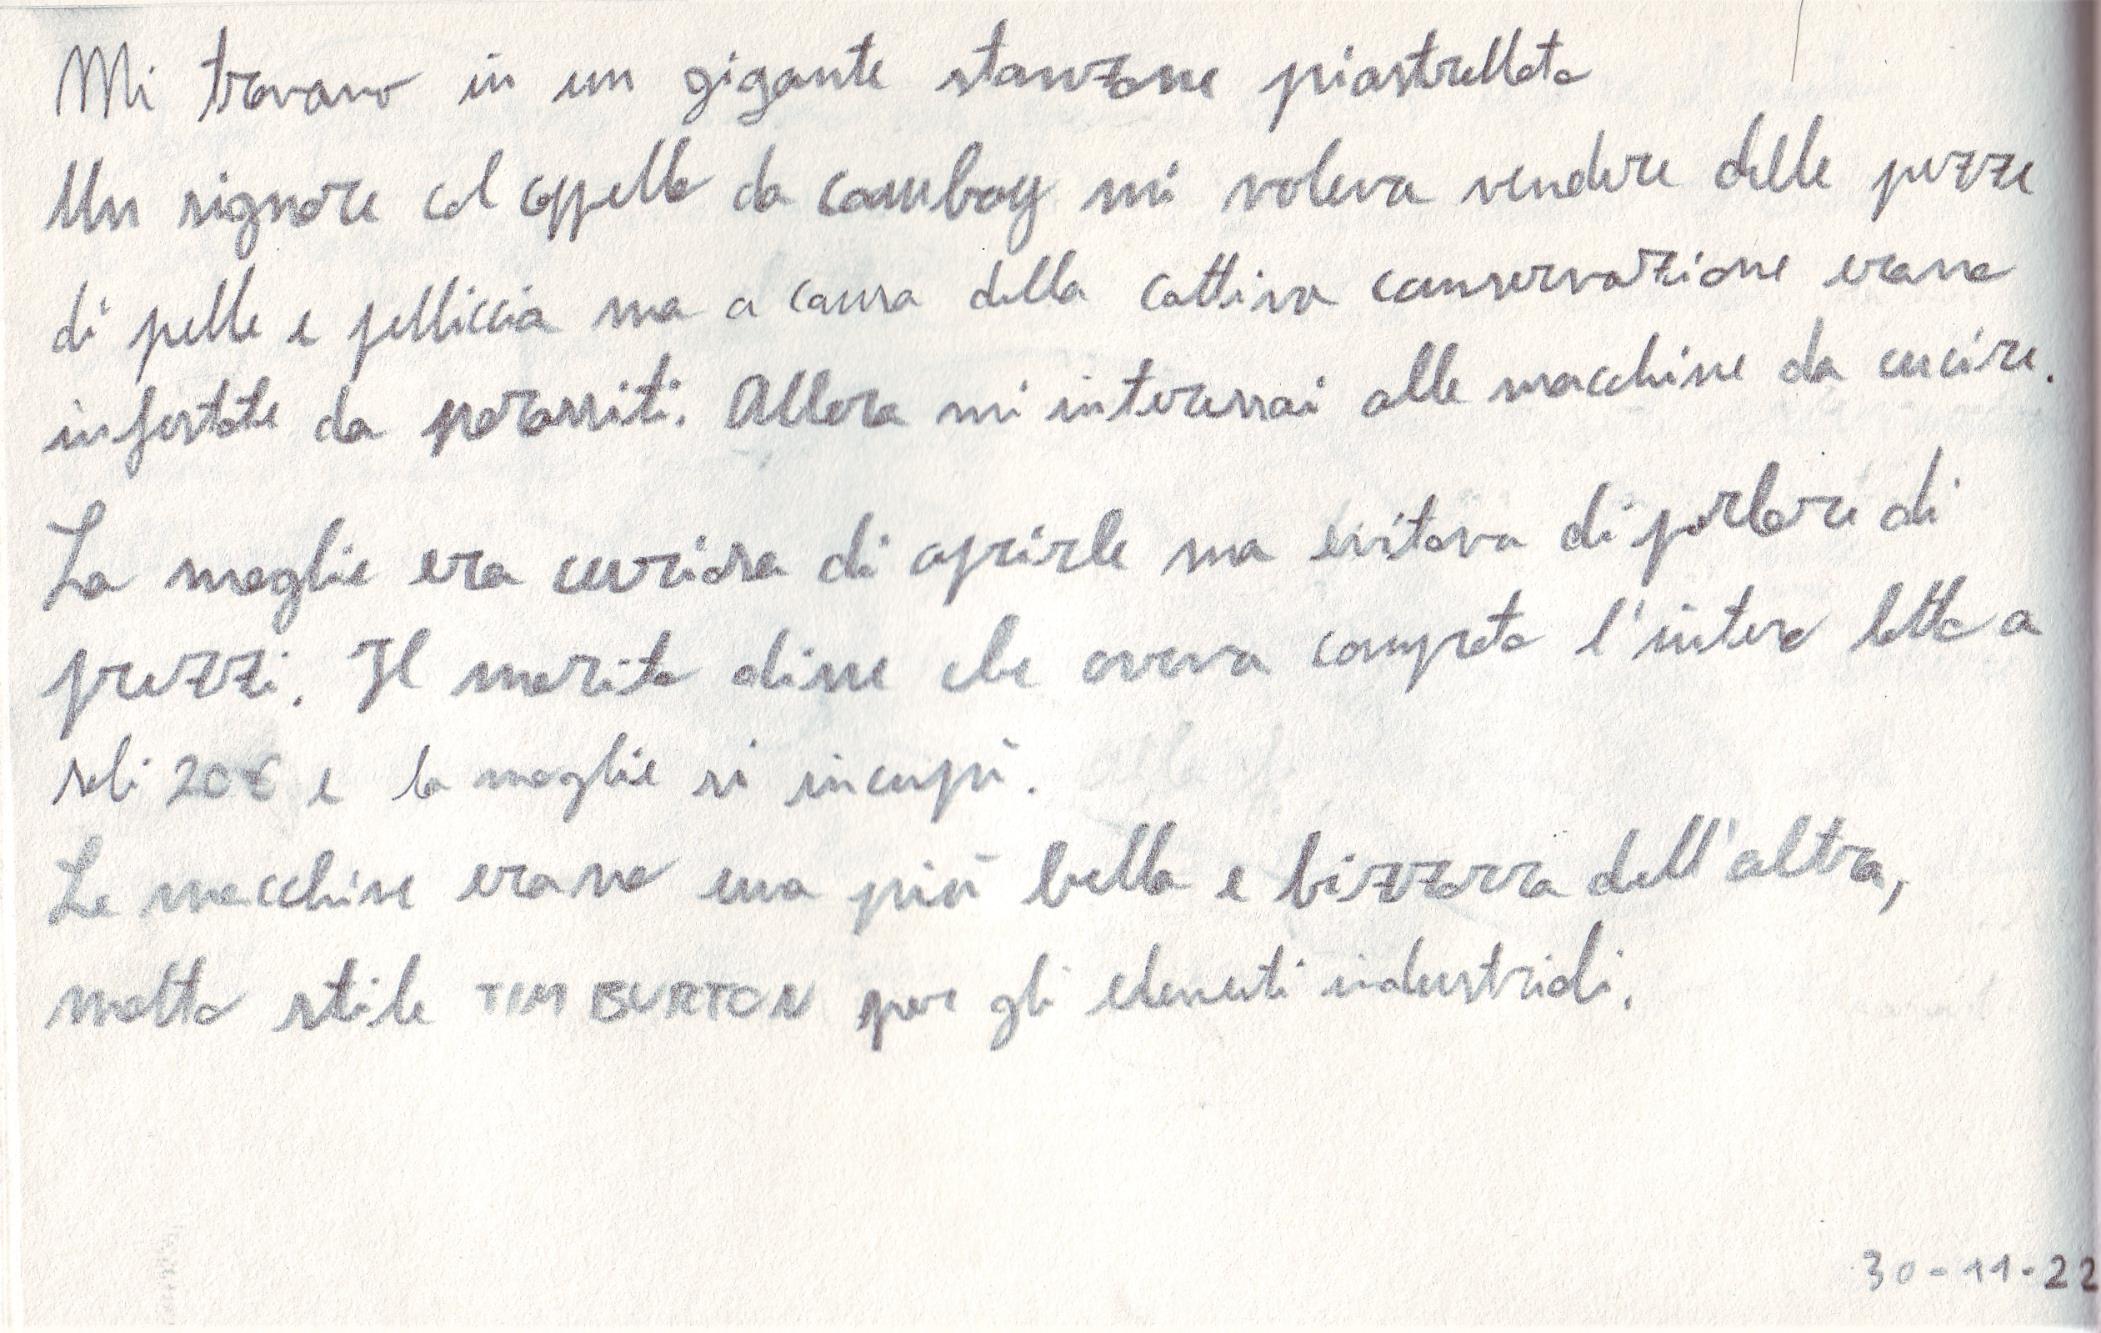 Mi trovavo in un gigante stanzone piastrellato
Un signore col cappello da cowboy mi voleva vendere delle pezze
di pelle e pelliccia ma a causa della cattiva conservazione erano
infestate da parassiti. Allora mi interessai alle macchine da cucire.
La moglie era curiosa di aprirle ma evitava di parlare di
prezzi. Il marito disse che aveva comprato l'intero lotto a
soli 20€ e la moglie si incupì.
Le macchine erano una più bella e bizzarra dell'altra,
molto stile TIM BURTON per gli elementi industriali.
30-11-22